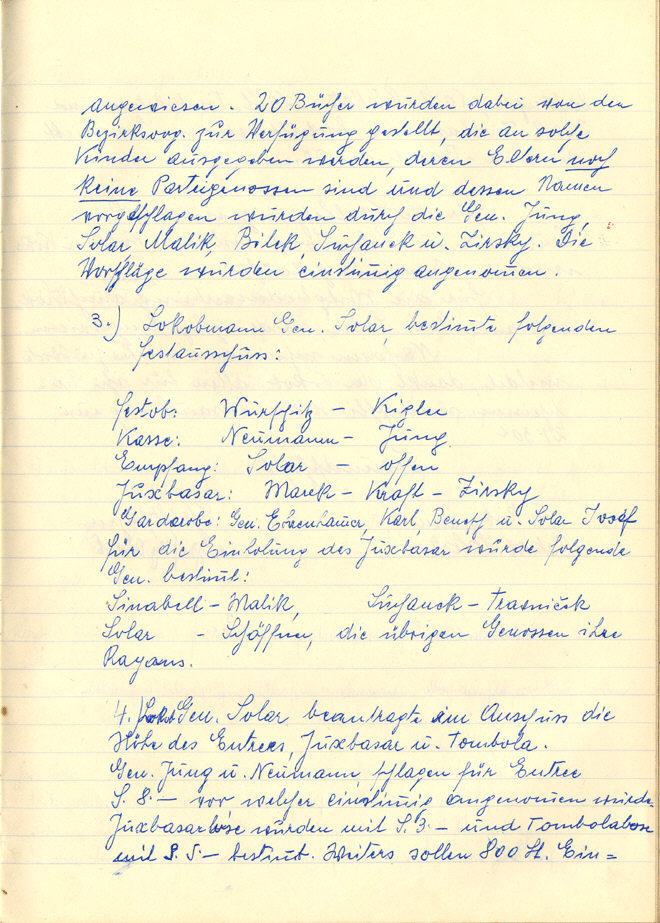 angewiesen. 20 Bücher wurden dabei von den
Bezirksorg. zur Verfügung gestellt, die an solche
Kinder ausgegeben werden, deren Eltern noch
keine Parteigenossen sind und dessen Namen
vorgeschlagen wurden durch die Gen. Jung,
Solar, Malik, Bilek, Suchanek u. Zirsky. Die
Vorschläge wurden einstimig angenomen.
3.) Lokobmann Gen. Solar, bestimte folgenden
Festausschuss:
Festob: Wurschitz - Kigler
Kasse: Neumann - Jung
Empfang: Solar - offen
Juxbasar: Marek - Kraft - Zirsky
Garderobe: Gen. Ehrenhauer, Karl, Benesch u. Solar Josef
für die Einholung des Juxbasar wurde folgende
Gen. bestimt:
Sinabell - Malik, Suchanek - Trasniček
Solar - Schöffner, die übrigen Genossen ihre
Rayans.
4.) Lokob Gen. Solar beantragte im Auschuss die
Höhe des Entrees, Juxbasar u. Tombola.
Gen. Jung u. Neumann, schlagen für Entree
S. 8.- vor welcher einstimig angenomen wurde.
Juxbasarlose wurden mit S. 3.- und Tombolalose
mit S. 5.- bestimt. Weiters sollen 800 St. Ein=